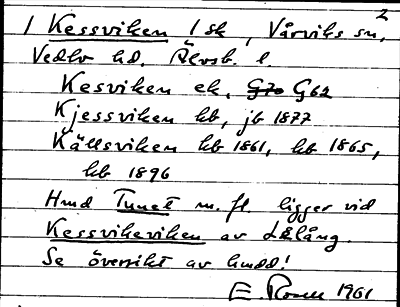 2
1 Kessviken 1 sk, Vårviks sn,
Vedbo hd. Älvsb. l.
Kesviken ek. G70 G62
Kjessviken kb, jb 1877
Källsviken kb 1861, kb 1865,
kb 1896
Hmd Tunet m. fl. ligger vid
Kessvikeviken av Lelång.
Se översikt av hmdd!
E Rosell 1961